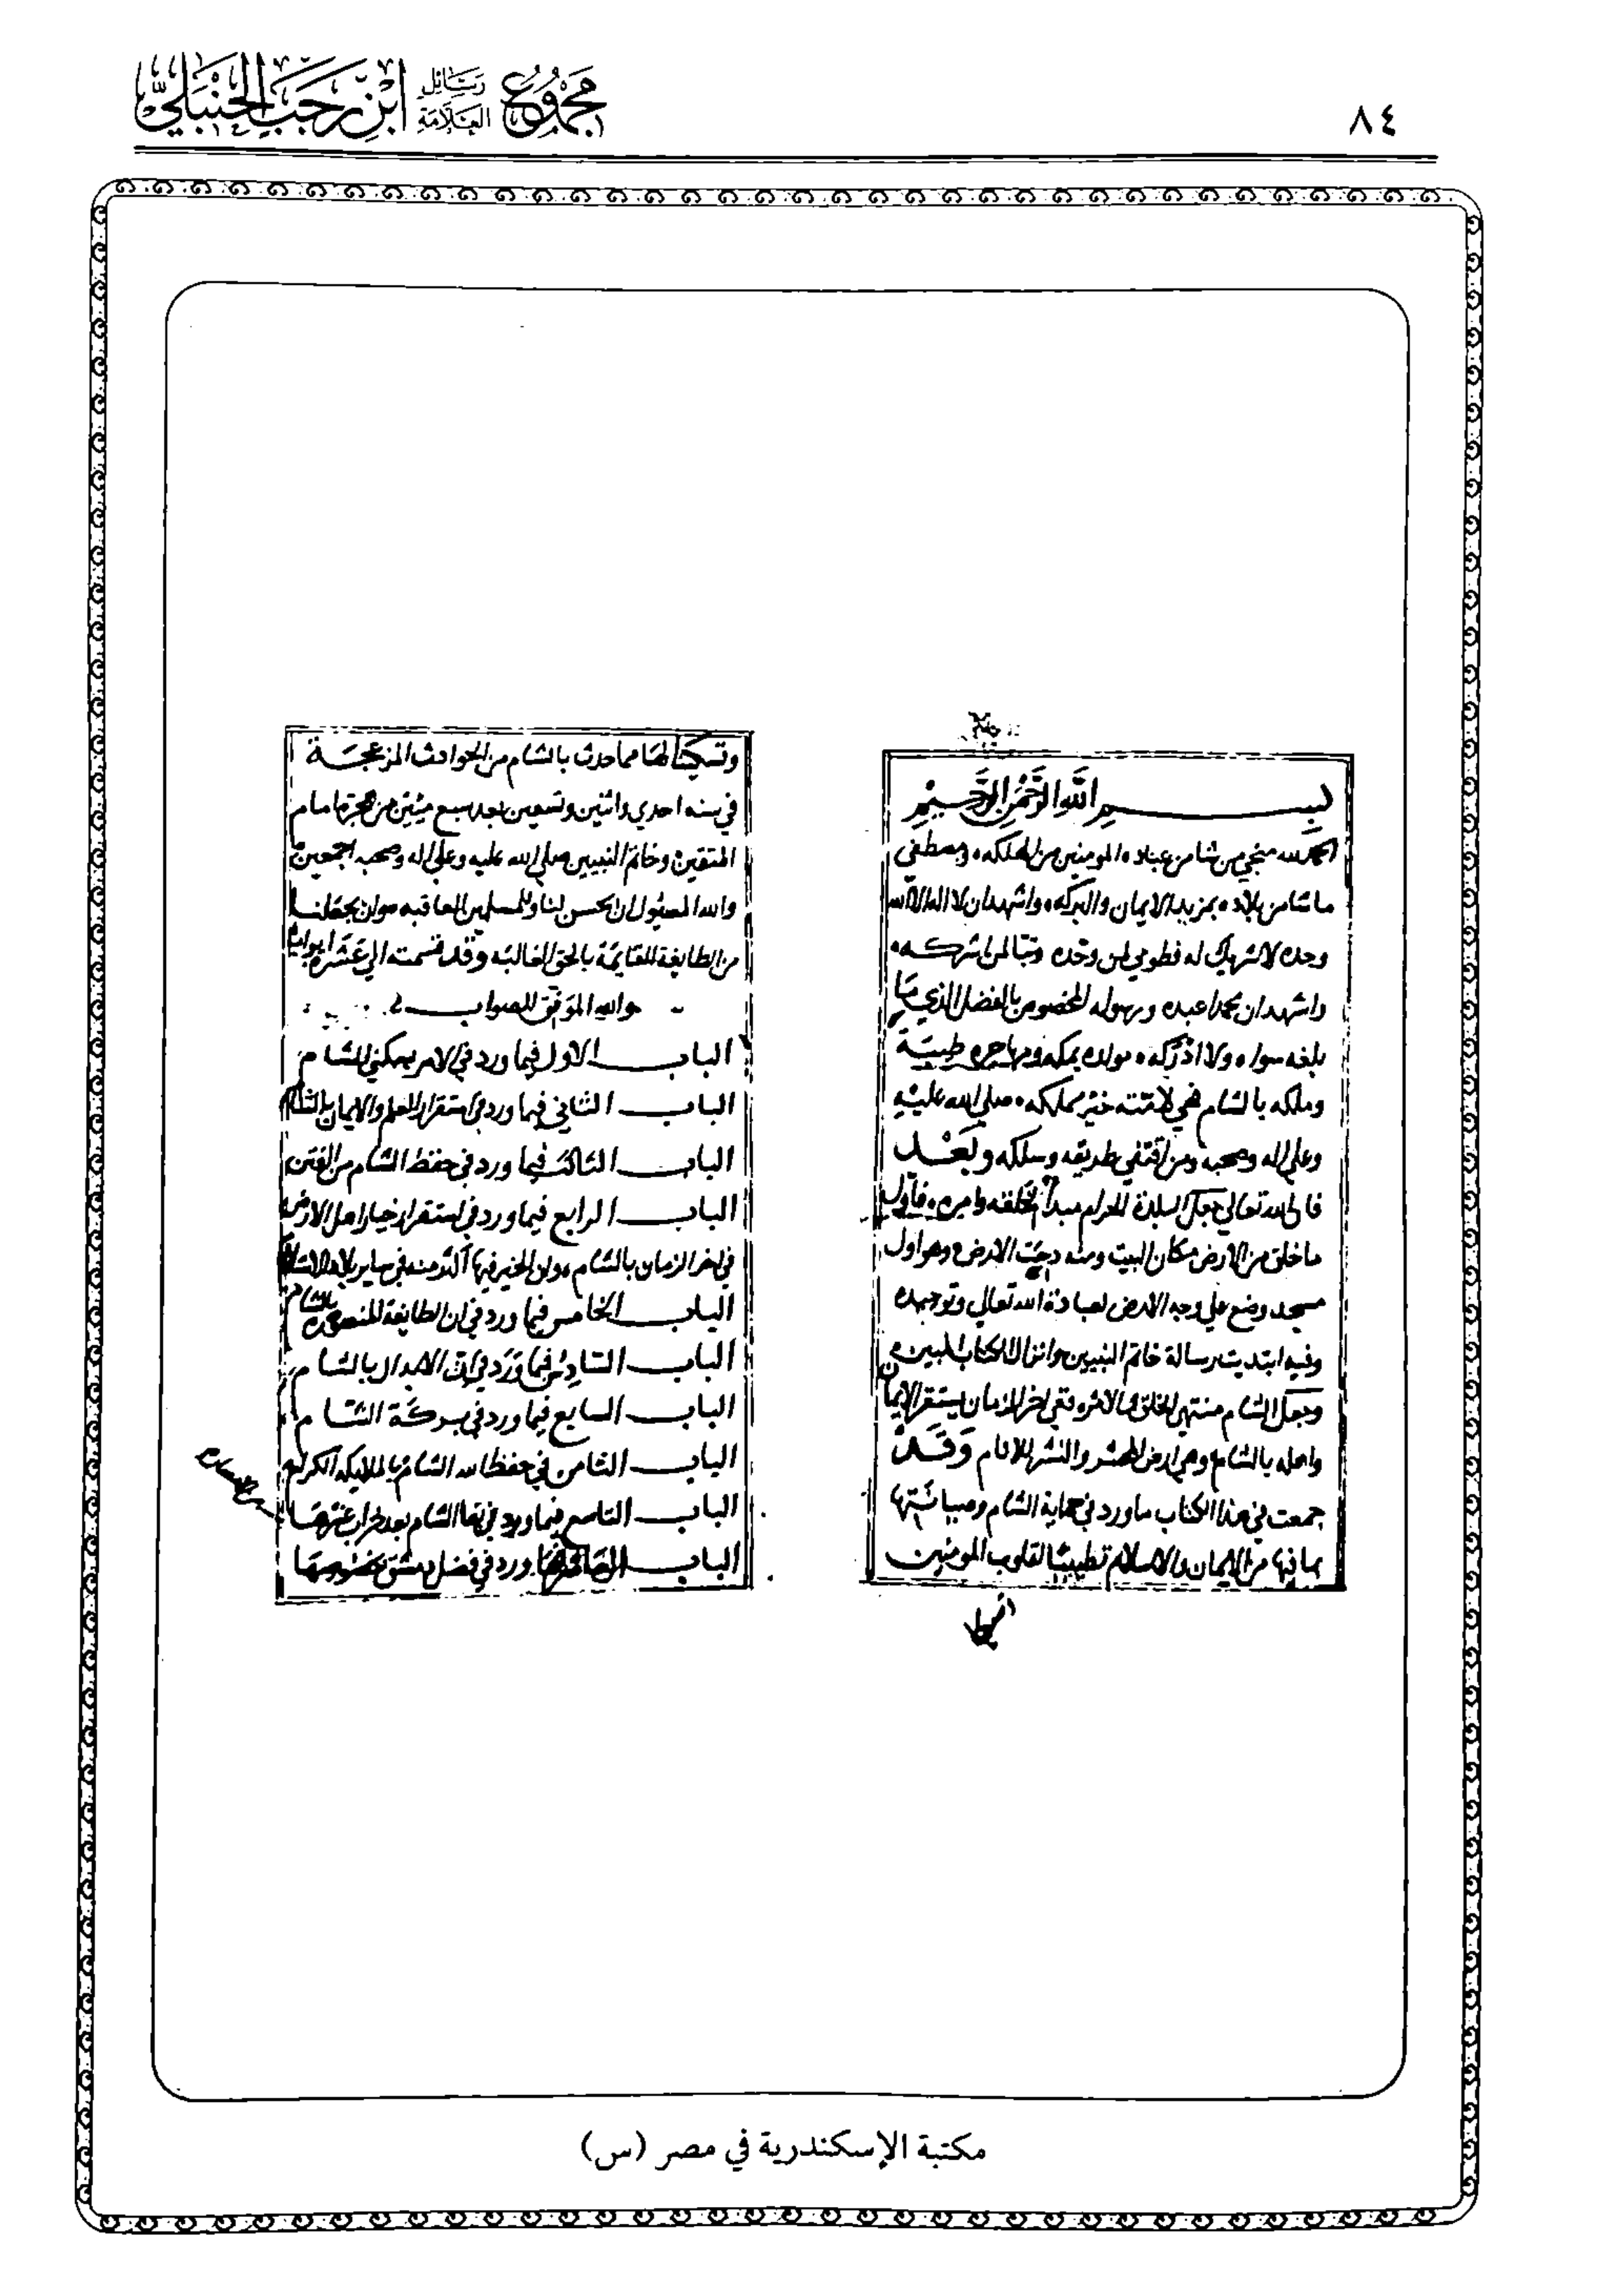 ٨٤
مجموع رسائل العلامة ابن رجب الحنبلي
بسم الله الرحمن الرحيم
الحمد لله منجي من شا من عباده المومنين من الهلكه ومصطفي
ما شا من بلاده بمزيد الايمان والبركه واشهد ان لا اله الا الله
وحده لا شريك له فطوبي لمن وحده وتبا لمن اشركه
واشهد ان محمدا عبده ورسوله المخصوص بالفضل الذي ما
بلغه سواه ولا ادركه مولده بمكه ومهاجره طيبة
وملكه بالشام فهي لامته خير مملكه صلي الله عليه
وعلي اله وصحبه ومن اقتفي طريقه وسلكه وبعد
فان الله تعالي جعل البلدة الحرام مبدا لخلقه وامره فاول
ما خلق من الارض مكان البيت ومنه دحيت الارض وهو اول
مسجد وضع علي وجه الارض لعبادة الله تعالي وتوحيده
وفيه ابتديت رسالة خاتم النبيين وانزال الكتاب المبين
وجعل الشام منتهي الخلق والامر ففي اخر الزمان يستقر الايمان
واهله بالشام وهي ارض المحشر والنشر للانام وقد
جمعت في هذا الكتاب ما ورد في حماية الشام وصيانتها
بما فيها من الايمان والاسلام تطييبا لقلوب المومنين
وتسكينا لها مما حدث بالشام من الحوادث المزعجة
في سنه احدي واثنين وتسعين بعد سبع ميئين من هجرة امام
المتقين وخاتم النبيين صلي الله عليه وعلي اله وصحبه اجمعين
والله المسئول ان يحسن لنا وللمسلمين العاقبه وان يجعلنا
من الطايفة القايمة بالحق الغالبه وقد قسمته الي عشرة ابواب
والله الموفق للصواب
الباب الاول فيما ورد في الامر بسكني الشام
الباب الثاني فيما ورد في استقرار العلم والايمان بالشام
الباب الثالث فيما ورد في حفظ الشام من الفتن
الباب الرابع فيما ورد في استقرار خيار اهل الارض
في اخر الزمان بالشام وان الخير فيها اكثر منه في ساير بلاد الاسلام
الباب الخامس فيما ورد في ان الطايفة المنصورة بالشام
الباب السادس فيما ورد في ان الابدال بالشام
الباب السابع فيما ورد في بركة الشام
الباب الثامن في حفظ الله الشام بالملايكه الكرام
الباب التاسع فيما ورد في بقا الشام بعد خراب غيرها
الباب العاشر فيما ورد في فضل دمشق بخصوصها
مكتبة الإسكندرية في مصر (س)